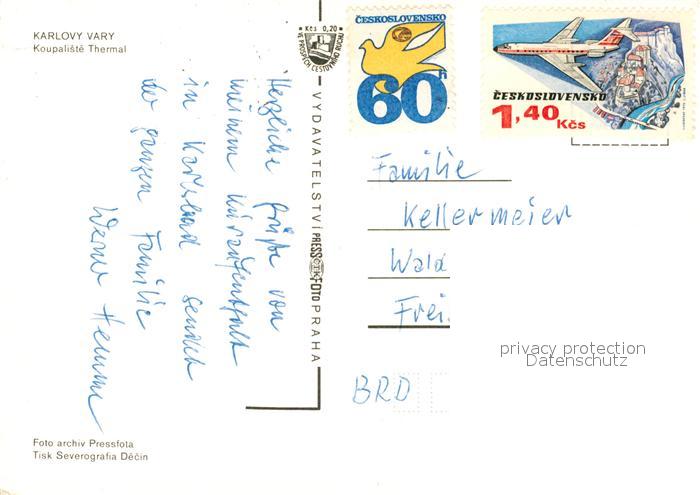 KARLOVY VARY
Koupaliště Thermal
Herzliche Grüße von
meinem Kuraufenthalt
in Karlsbad sendet
der ganzen Familie
Werner
Foto archiv Pressfota
Tisk Severografia Děčín
VYDAVATELSTVÍ PRESSFOTO PRAHA
Kčs 0,20
VE PROSPĚCH CESTOVNÍHO RUCHU
ČESKOSLOVENSKO
60h
ČESKOSLOVENSKO
1,40 Kčs
Familie
Kellermeier
Wald
Frei.
BRD
privacy protection
Datenschutz